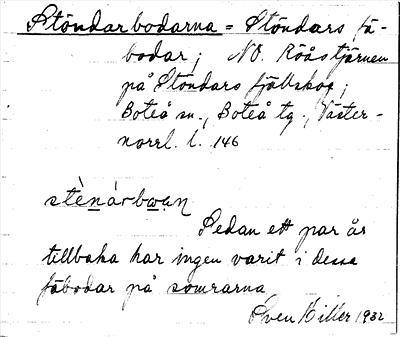 Stöndarbodarna = Stöndars fä-
bodar; NO. Rööstjärnen
på Stöndars fjällskog;
Boteå sn., Boteå tg., Väster-
norrl. l. 146
stènárbwan
Sedan ett par år
tillbaka har ingen varit i dessa
fäbodar på somrarna.
Sven Hiller 1932